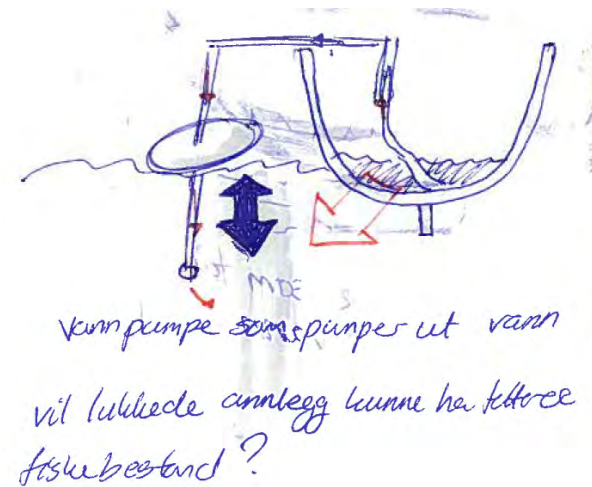 vannpumpe som pumper ut vann
vil lukkede annlegg kunne ha tettere
fiskebestand?